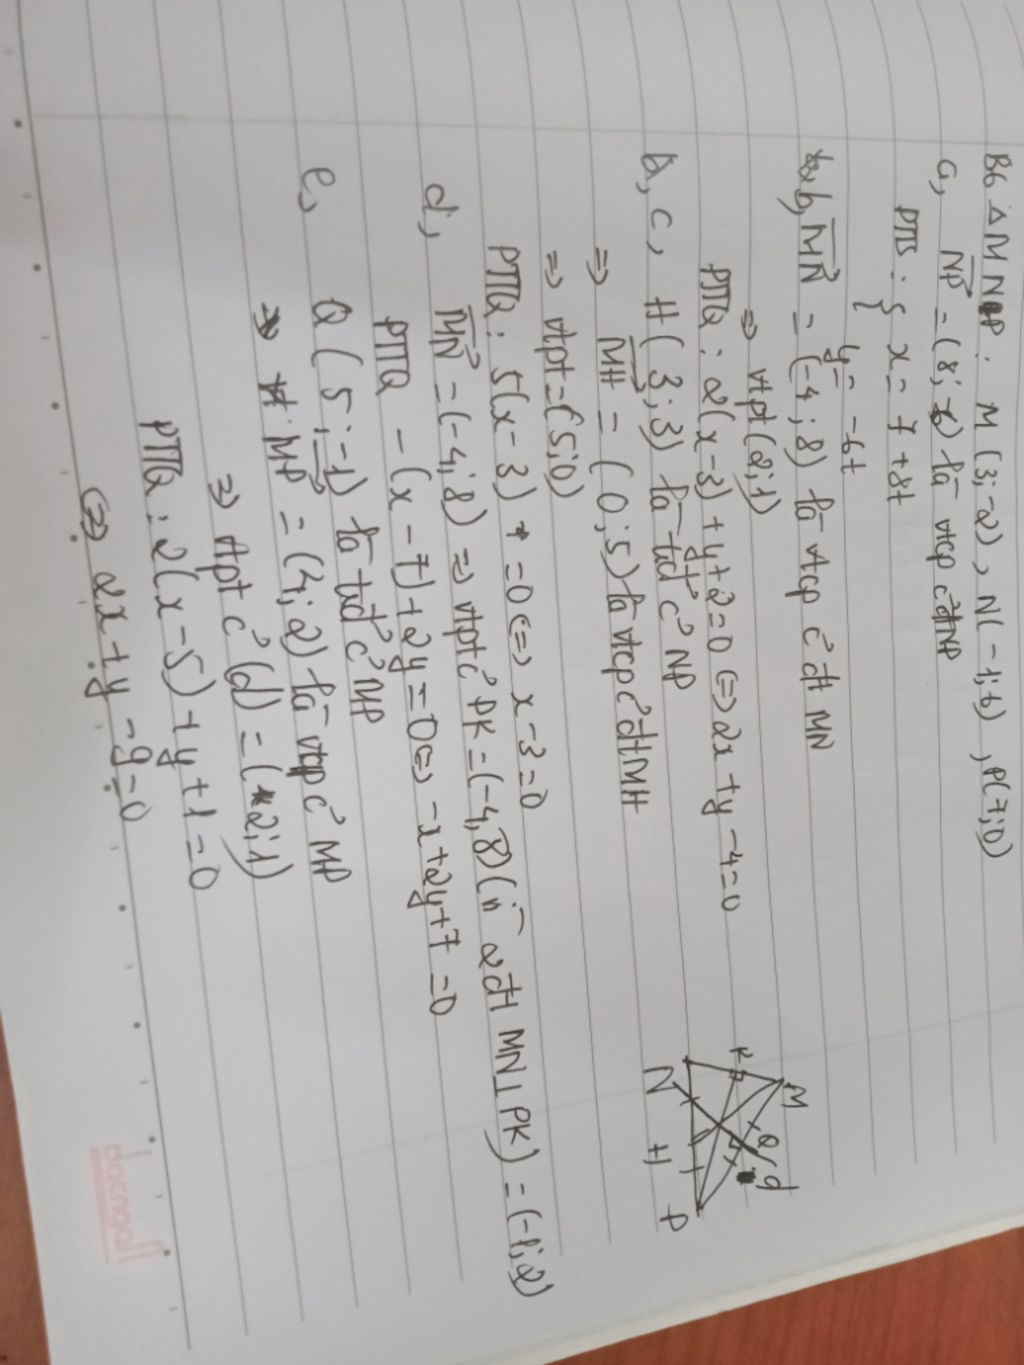 B6 △MNP: M(3;-2), N(-1;6), P(7;0)
a, NP = (8;-6) là vtcp c² đt NP
PTTS: { x = 7 + 8t
y = -6t
b, MN = (-4;8) là vtcp c² đt MN
=> vtpt (2;1)
PTTQ: 2(x-3) + y + 2 = 0 <=> 2x + y - 4 = 0
c, H(3;3) là tđ c² NP
=> MH = (0;5) là vtcp c² đt MH
=> vtpt = (5;0)
PTTQ: 5(x-3) = 0 <=> x - 3 = 0
d, MN = (-4;8) => vtpt c² PK = (-4;8) (vì 2 đt MN ⊥ PK) = (-1;2)
PTTQ - (x-7) + 2y = 0 <=> -x + 2y + 7 = 0
e, Q(5;-1) là tđ c² MP
=> MP = (4;2) là vtcp c² MP
=> vtpt c² (d) = (2;1)
PTTQ: 2(x-5) + y + 1 = 0
<=> 2x + y - 9 = 0
M
K
Q
d
N
H
P